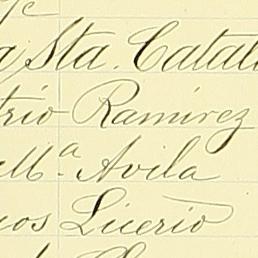 a Sta. Catali
trio Ramirez
Mª. Avila
cos Licerio